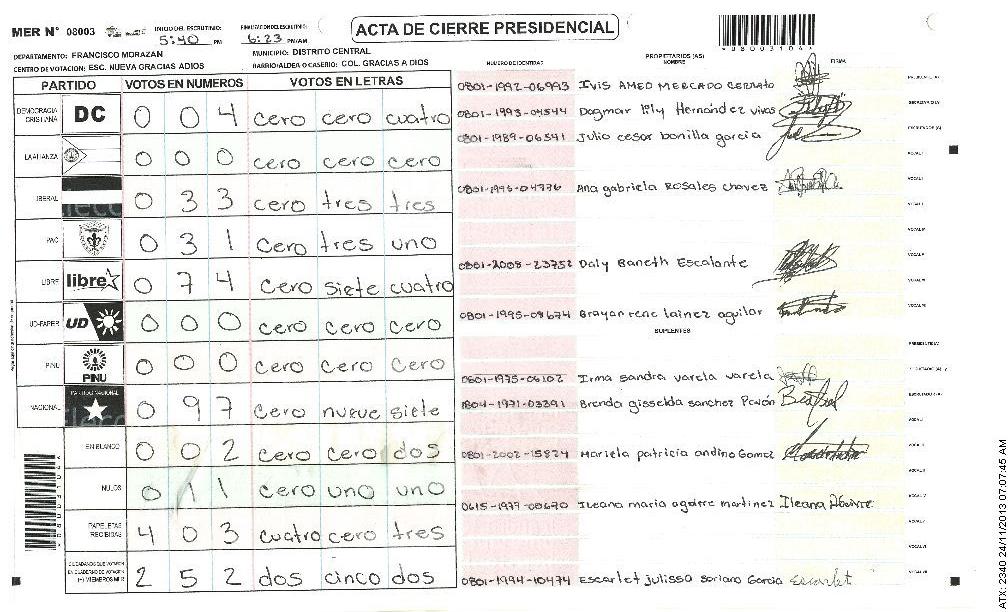 ACTA DE CIERRE PRESIDENCIAL
MER N° 08003
INICIO DEL ESCRUTINIO: 5:40 PM
FINALIZACION DEL ESCRUTINIO: 6:23 PM/AM
DEPARTAMENTO: FRANCISCO MORAZAN
MUNICIPIO: DISTRITO CENTRAL
CENTRO DE VOTACION: ESC. NUEVA GRACIAS A DIOS
BARRIO/ALDEA O CASERIO: COL. GRACIAS A DIOS
PARTIDO VOTOS EN NUMEROS VOTOS EN LETRAS
DEMOCRACIA CRISTIANA DC 0 0 4 cero cero cuatro
LA ALIANZA 0 0 0 cero cero cero
LIBERAL 0 3 3 cero tres tres
PAC 0 3 1 cero tres uno
LIBRE libre 0 7 4 cero siete cuatro
UD-FAPER UD 0 0 0 cero cero cero
PINU PINU 0 0 0 cero cero cero
NACIONAL PARTIDO NACIONAL 0 9 7 cero nueve siete
EN BLANCO 0 0 2 cero cero dos
NULOS 0 1 1 cero uno uno
PAPELETAS RECIBIDAS 4 0 3 cuatro cero tres
CIUDADANOS QUE VOTARON EN CUADERNO DE VOTACION (+) MIEMBROS MER 2 5 2 dos cinco dos
NUMERO DE IDENTIDAD PROPIETARIOS (AS) NOMBRE FIRMA
0801-1992-06993 Ivis AMED MERCADO CERRATO
0801-1993-04544 Dagmar lily Hernández vivas
0801-1989-06541 Julio cesar bonilla garcia
Ana gabriela Rosales chavez
0801-2008-23752 Daly Baneth Escalante
0801-1995-08674 Brayan rene lainez aguilar
SUPLENTES
0801-1975-06102 Irma sandra varela varela
1804-1971-03391 Brenda gisselda sanchez Pavón
0801-2002-15824 Mariela patricia andino Gomez
0615-1977-00670 Ileana maria aguirre martinez Ileana Aguirre
0801-1994-10474 Escarlet julissa soriano Garcia Escarlet
ATX: 2340 24/11/2013 07:07:45 AM